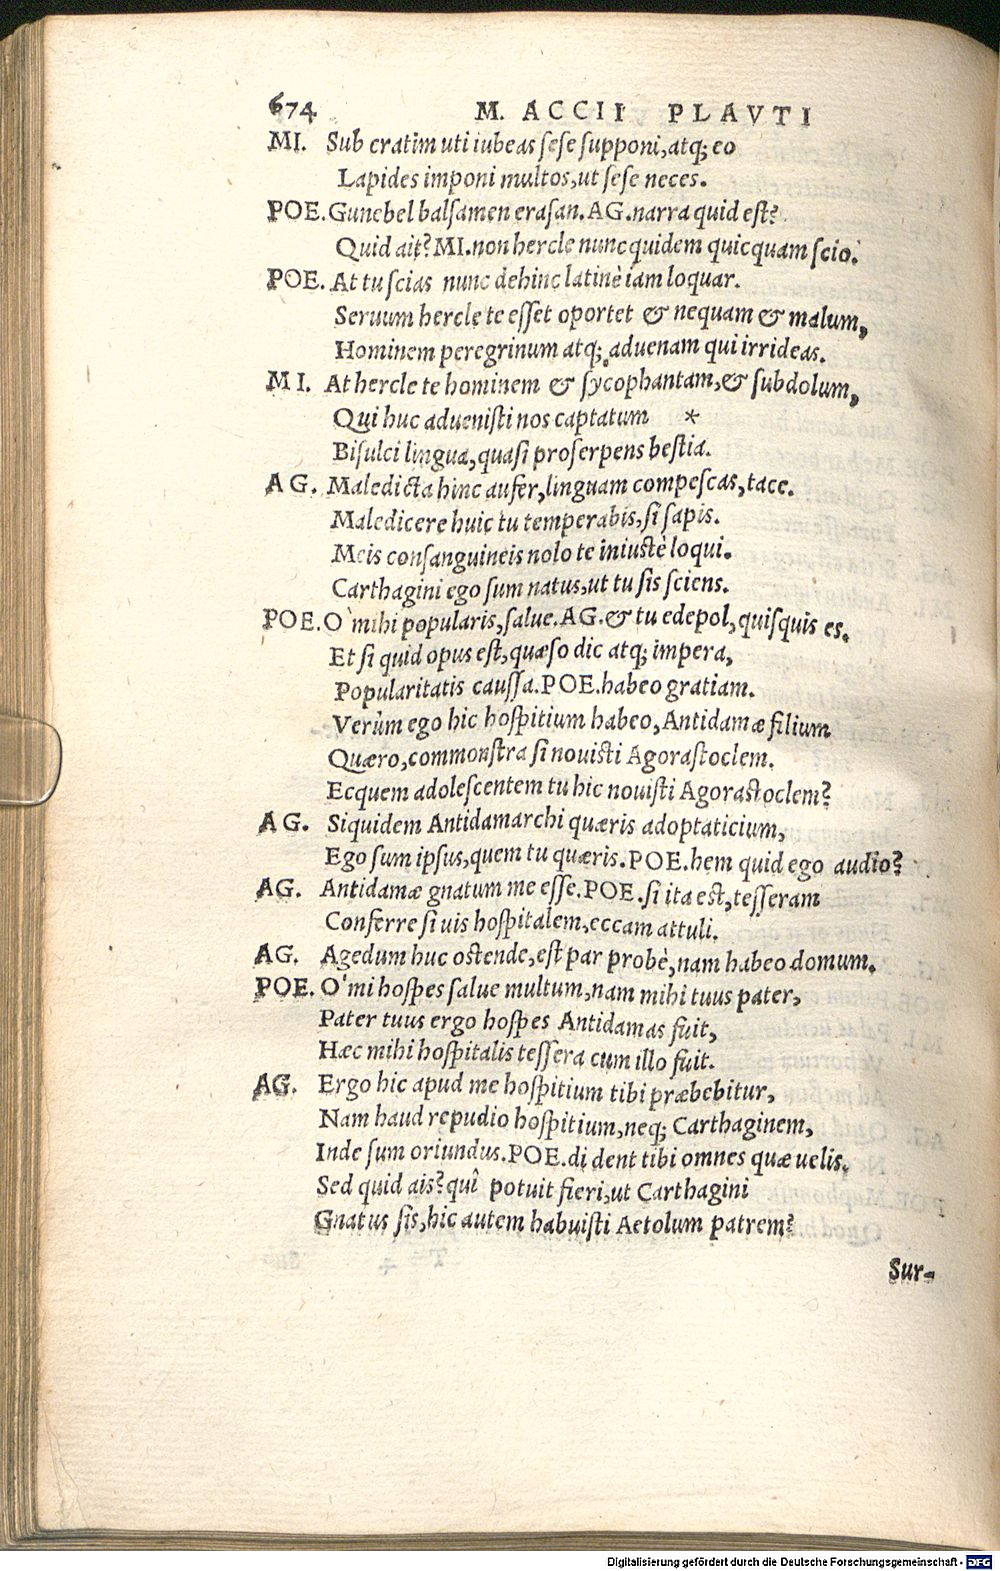 674 M. ACCII PLAVTI
MI. Sub cratim uti iubeas sese supponi, atq; eo
Lapides imponi multos, ut sese neces.
POE. Gunebel balsamen erasan. AG. narra quid est?
Quid ait? MI. non hercle nunc quidem quicquam scio.
POE. At tu scias nunc dehinc latinè iam loquar.
Seruum hercle te esset oportet & nequam & malum,
Hominem peregrinum atq; aduenam qui irrideas.
MI. At hercle te hominem & sycophantam, & subdolum,
Qui huc aduenisti nos captatum *
Bisulci lingua, quasi proserpens bestia.
AG. Maledicta hinc aufer, linguam compescas, tace.
Maledicere huic tu temperabis, si sapis.
Meis consanguineis nolo te iniustè loqui.
Carthagini ego sum natus, ut tu sis sciens.
POE. O' mihi popularis, salue. AG. & tu edepol, quisquis es.
Et si quid opus est, quæso dic atq; impera,
Popularitatis caussa. POE. habeo gratiam.
Verùm ego hic hospitium habeo, Antidamæ filium
Quæro, commonstra si nouisti Agorastoclem.
Ecquem adolescentem tu hic nouisti Agorastoclem?
AG. Siquidem Antidamarchi quæris adoptaticium,
Ego sum ipsus, quem tu quæris. POE. hem quid ego audio?
AG. Antidamæ gnatum me esse. POE. si ita est, tesseram
Conferre si uis hospitalem, eccam attuli.
AG. Agedum huc ostende, est par probè, nam habeo domum.
POE. O' mi hospes salue multum, nam mihi tuus pater,
Pater tuus ergo hospes Antidamas fuit,
Hæc mihi hospitalis tessera cum illo fuit.
AG. Ergo hic apud me hospitium tibi præbebitur,
Nam haud repudio hospitium, neq; Carthaginem,
Inde sum oriundus. POE. di dent tibi omnes quæ uelis.
Sed quid ais? quî potuit fieri, ut Carthagini
Gnatus sis, hic autem habuisti Aetolum patrem?
Sur-
Digitalisierung gefördert durch die Deutsche Forschungsgemeinschaft - DFG